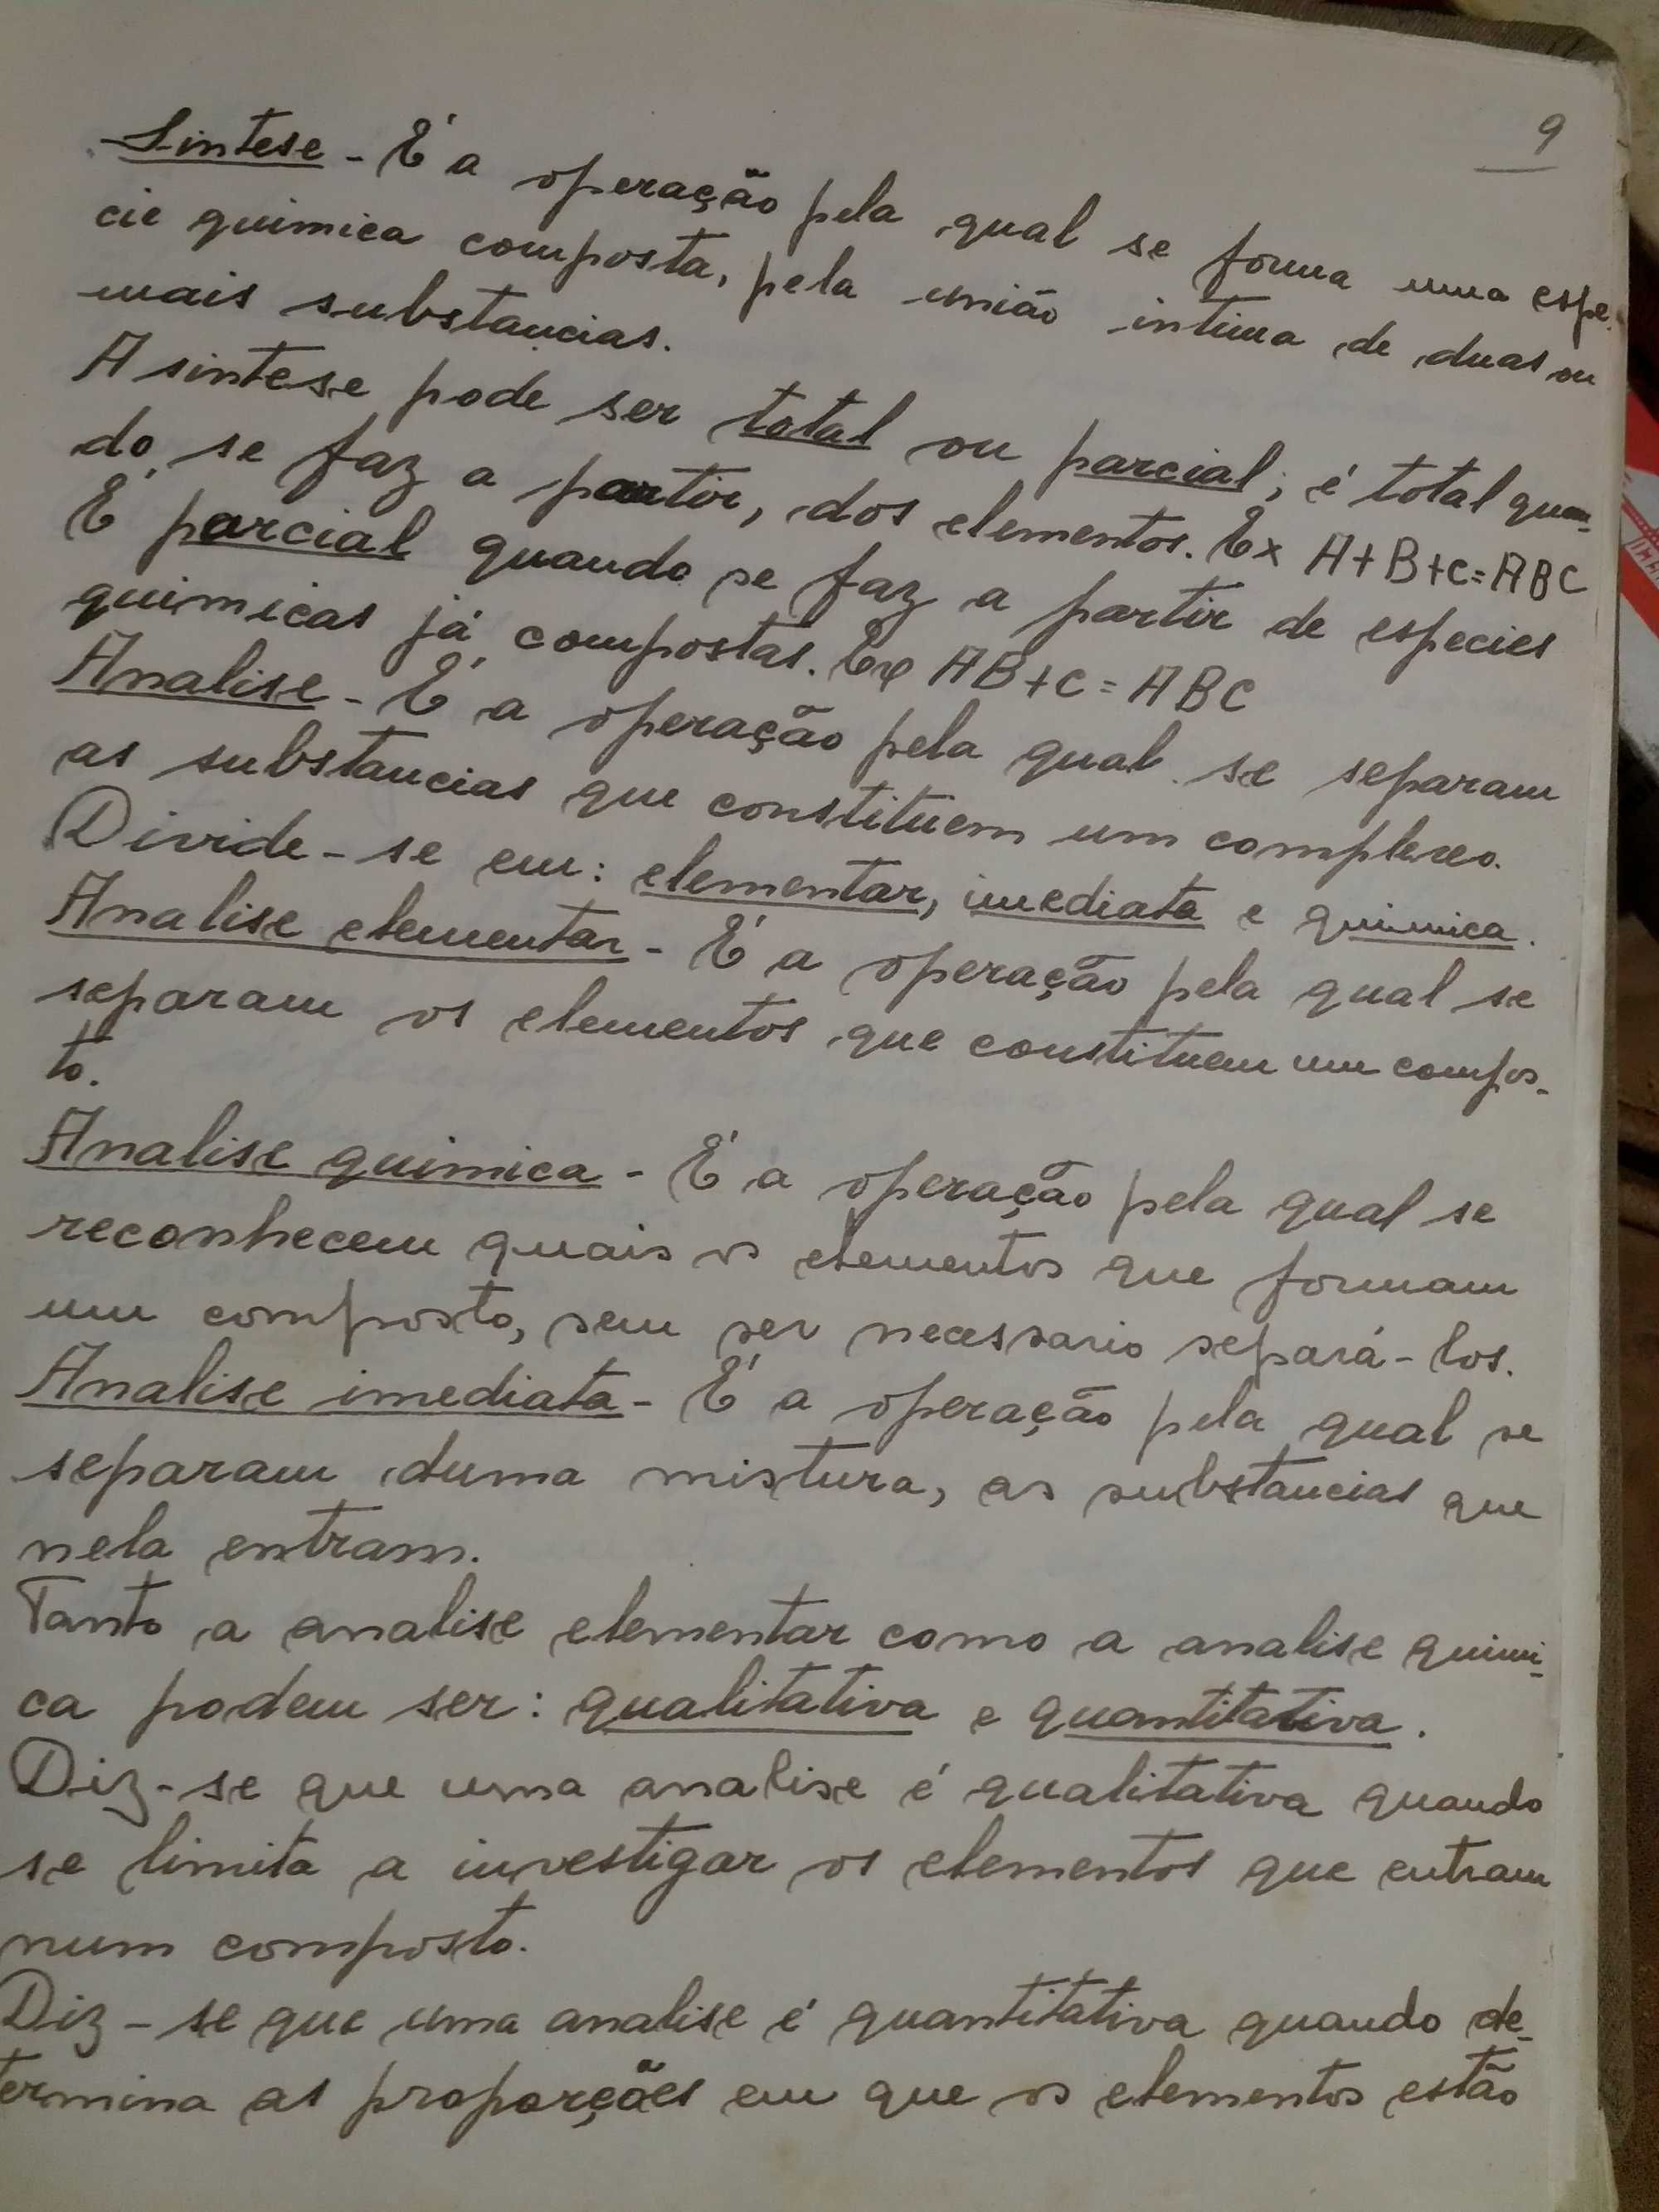 9
Sintese - É a operação pela qual se forma uma espe-
cie quimica composta, pela união intima de duas ou
mais substancias.
A sintese pode ser total ou parcial; é total quan-
do se faz a partir, dos elementos. Ex A+B+C=ABC
É parcial quando se faz a partir de especies
quimicas já compostas. Ex AB+C=ABC
Analise - É a operação pela qual se separam
as substancias que constituem um complexo.
Divide-se em: elementar, imediata e quimica.
Analise elementar - É a operação pela qual se
separam os elementos que constituem um compos-
to.
Analise quimica - É a operação pela qual se
reconhecem quais os elementos que formam
um composto, sem ser necessario separá-los.
Analise imediata - É a operação pela qual se
separam duma mistura, as substancias que
nela entram.
Tanto a analise elementar como a analise quimi-
ca podem ser: qualitativa e quantitativa.
Diz-se que uma analise é qualitativa quando
se limita a investigar os elementos que entram
num composto.
Diz-se que uma analise é quantitativa quando de-
termina as proporções em que os elementos estão